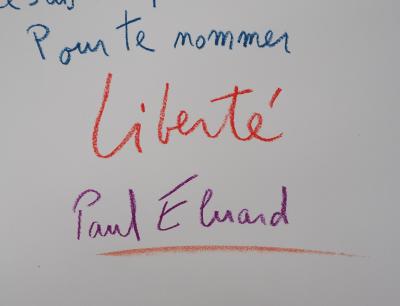 Pour te nommer
Liberté
Paul Éluard